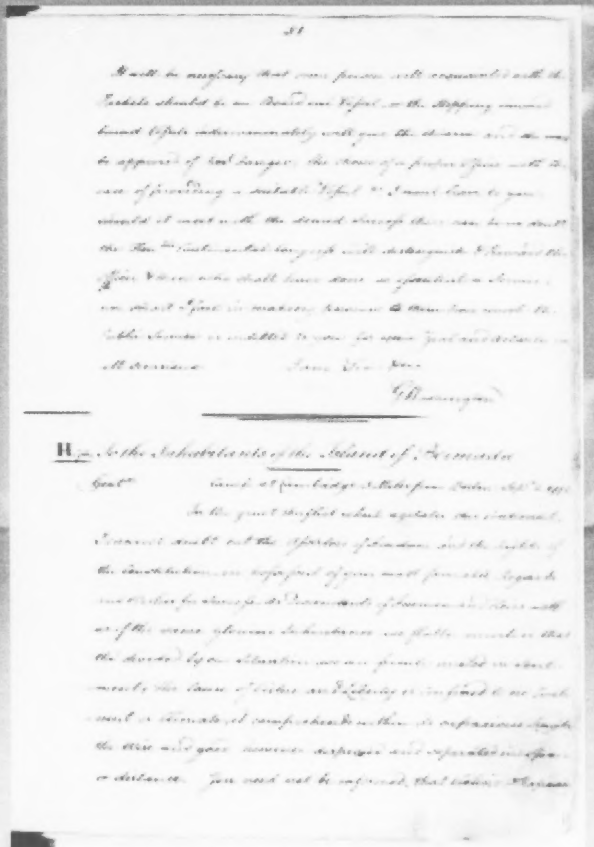 It will be necessary that some person well acquainted with the
should be on Board our Vessel, or the Stopping inward
bound Vessels indiscriminately will give the Alarm and she may
be apprized of her danger. The choice of a proper Officer with the
care of providing a suitable Vessel &c I must leave to you
should it meet with the desired Success there can be no doubt
the Honble Continental Congress will distinguish & reward the
Officer & Men who shall have done so essential a Service
nor shall I fail in making known to them how much the
Public Service is indebted to you for your Zeal and
all occasions I am Sir &ca
G Washington
H To the Inhabitants of the Island of Bermuda
Gentn Camp at Cambridge 3 Miles from Boston Sepr
In the great Conflict which agitates this Continent
I cannot doubt but the Assertors of Freedom and the Rights of
the Constitution are possessed of your most favorable Regards
and Wishes for Success. As Descendants of Freemen and Heirs with
us of the same glorious Inheritance we flatter ourselves that
tho divided by our Situation we are firmly united in Senti
ment; the Cause of Virtue and Liberty is confined to no Conti
nent or Climate, it comprehends within its capacious Limits
the Wise and good however dispersed and seperated in Space
or distance. You need not be informed, that Violence &